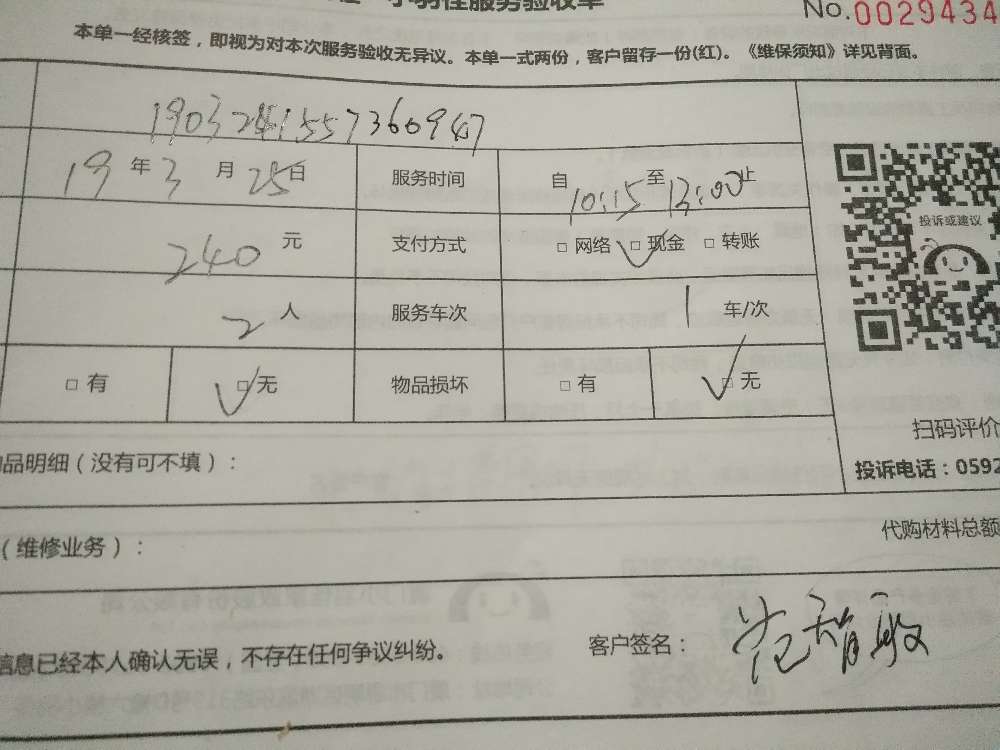 服务验收单
No.0029434
本单一经核签，即视为对本次服务验收无异议。本单一式两份，客户留存一份(红)。《维保须知》详见背面。
19年3月25日 服务时间 自10:15至13:00止
240元 支付方式 □ 网络 □ 现金 □ 转账
2人 服务车次 1车/次
□ 有 □ 无 物品损坏 □ 有 □ 无
投诉或建议
扫码评价
投诉电话：0592
品明细（没有可不填）：
（维修业务）：
代购材料总额
信息已经本人确认无误，不存在任何争议纠纷。
客户签名：